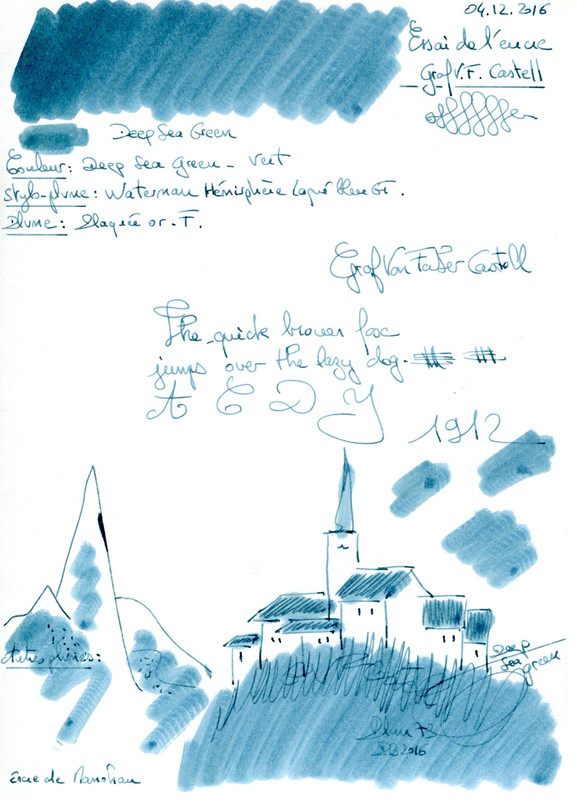 04.12.2016
Essai de l'encre
Graf V.F. Castell
Deep Sea Green
Couleur: Deep Sea Green - Vert
Stylo-plume: Waterman Hémisphère Laqué bleu GT.
Plume: Plaquée or. F.
Graf Von Faber Castell
The quick brown fox
jumps over the lazy dog.
A C D Y
1912
Deep
Sea
green
2016